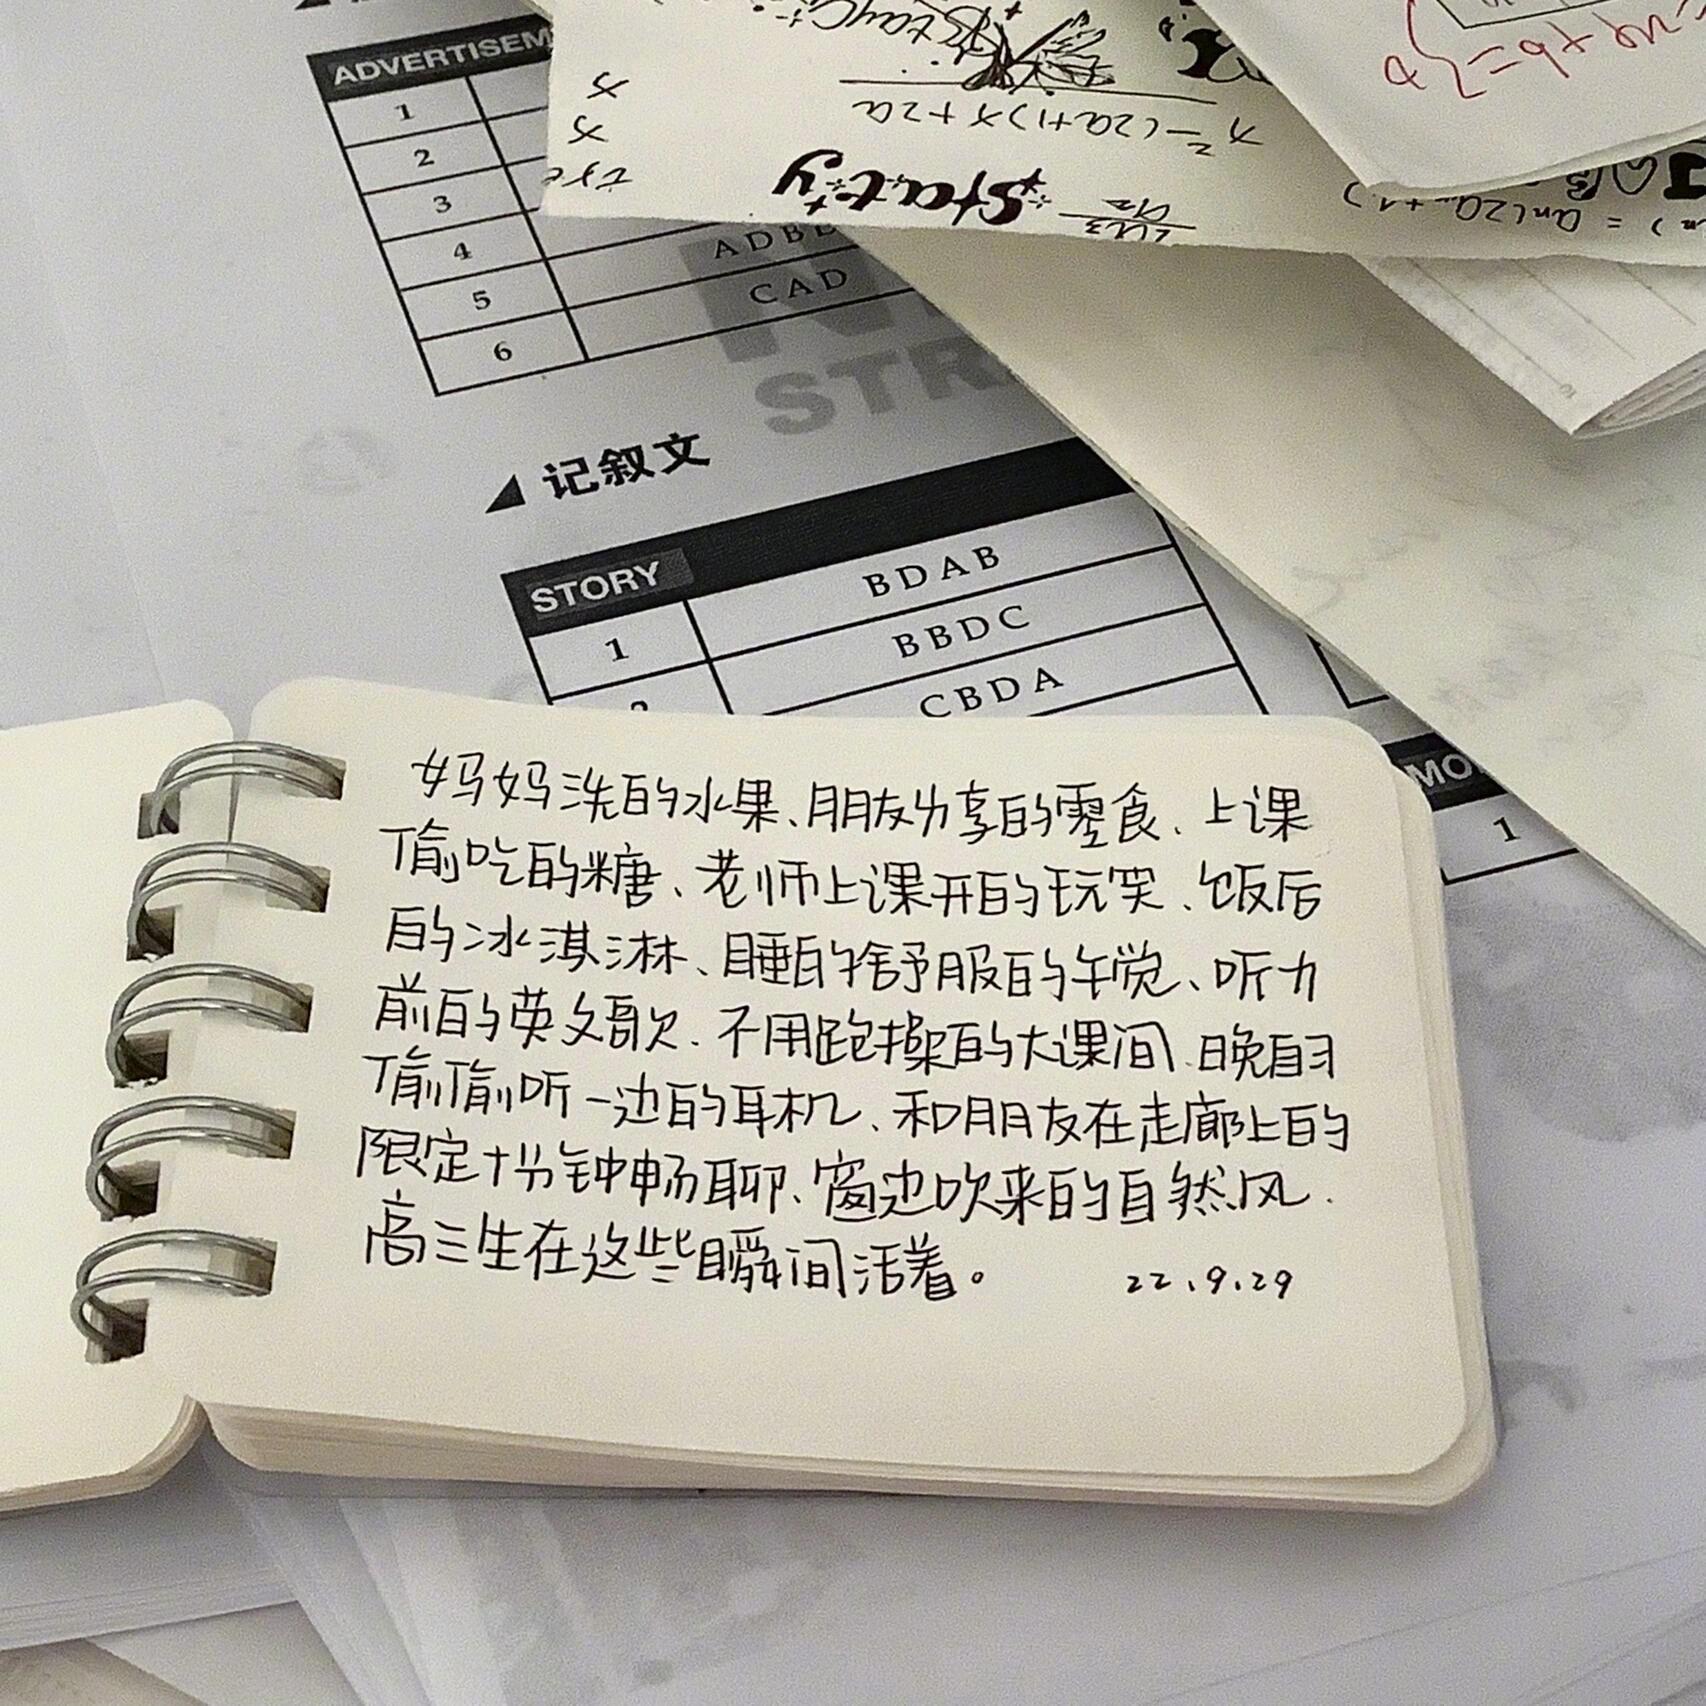 ADVERTISEM
1
2
3
4
ADBD
5
CAD
6
STR
记叙文
STORY
BDAB
1
BBDC
2
CBDA
MO
1
x
x
x²-(2a+1)x+2a
Stay
妈妈洗的水果、朋友分享的零食、上课
偷吃的糖、老师上课开的玩笑、饭后
的冰淇淋、睡的舒服的午觉、听力
前的英文歌、不用跑操的大课间、晚自习
偷偷听一边的耳机、和朋友在走廊上的
限定十分钟畅聊、窗边吹来的自然风、
高三生在这些瞬间活着。
22.9.29